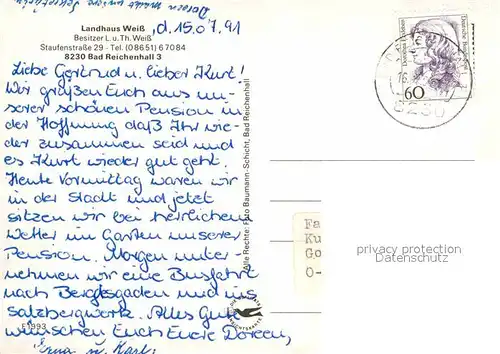 Doreen macht unsere Sekretärin
Landhaus Weiß
Besitzer L. u. Th. Weiß
Staufenstraße 29 - Tel. (08651) 67084
8230 Bad Reichenhall 3
d. 15.07.91
Liebe Gertrud u. lieber Kurt!
Wir grüßen Euch aus un-
serer schönen Pension in
der Hoffnung daß Ihr wie-
der zusammen seid und
es Kurt wieder gut geht.
Heute Vormittag waren wir
in der Stadt und jetzt
sitzen wir bei herrlichem
Wetter im Garten unserer
Pension. Morgen unter-
nehmen wir eine Busfahrt
nach Berchtesgaden und ins
Salzbergwerk. Alles Gute
wünschen Euch Eure Doreen,
Erna u. Karl.
Alle Rechte: Foto Baumann-Schicht, Bad Reichenhall
60
Deutsche Bundespost
8230
Fa
Ku
Go
0-
privacy protection
Datenschutz